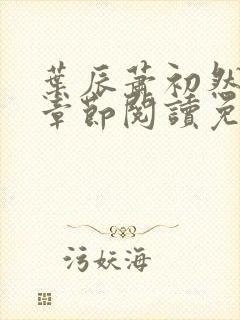 葉辰蕭初然
章節閱讀免
污妖海